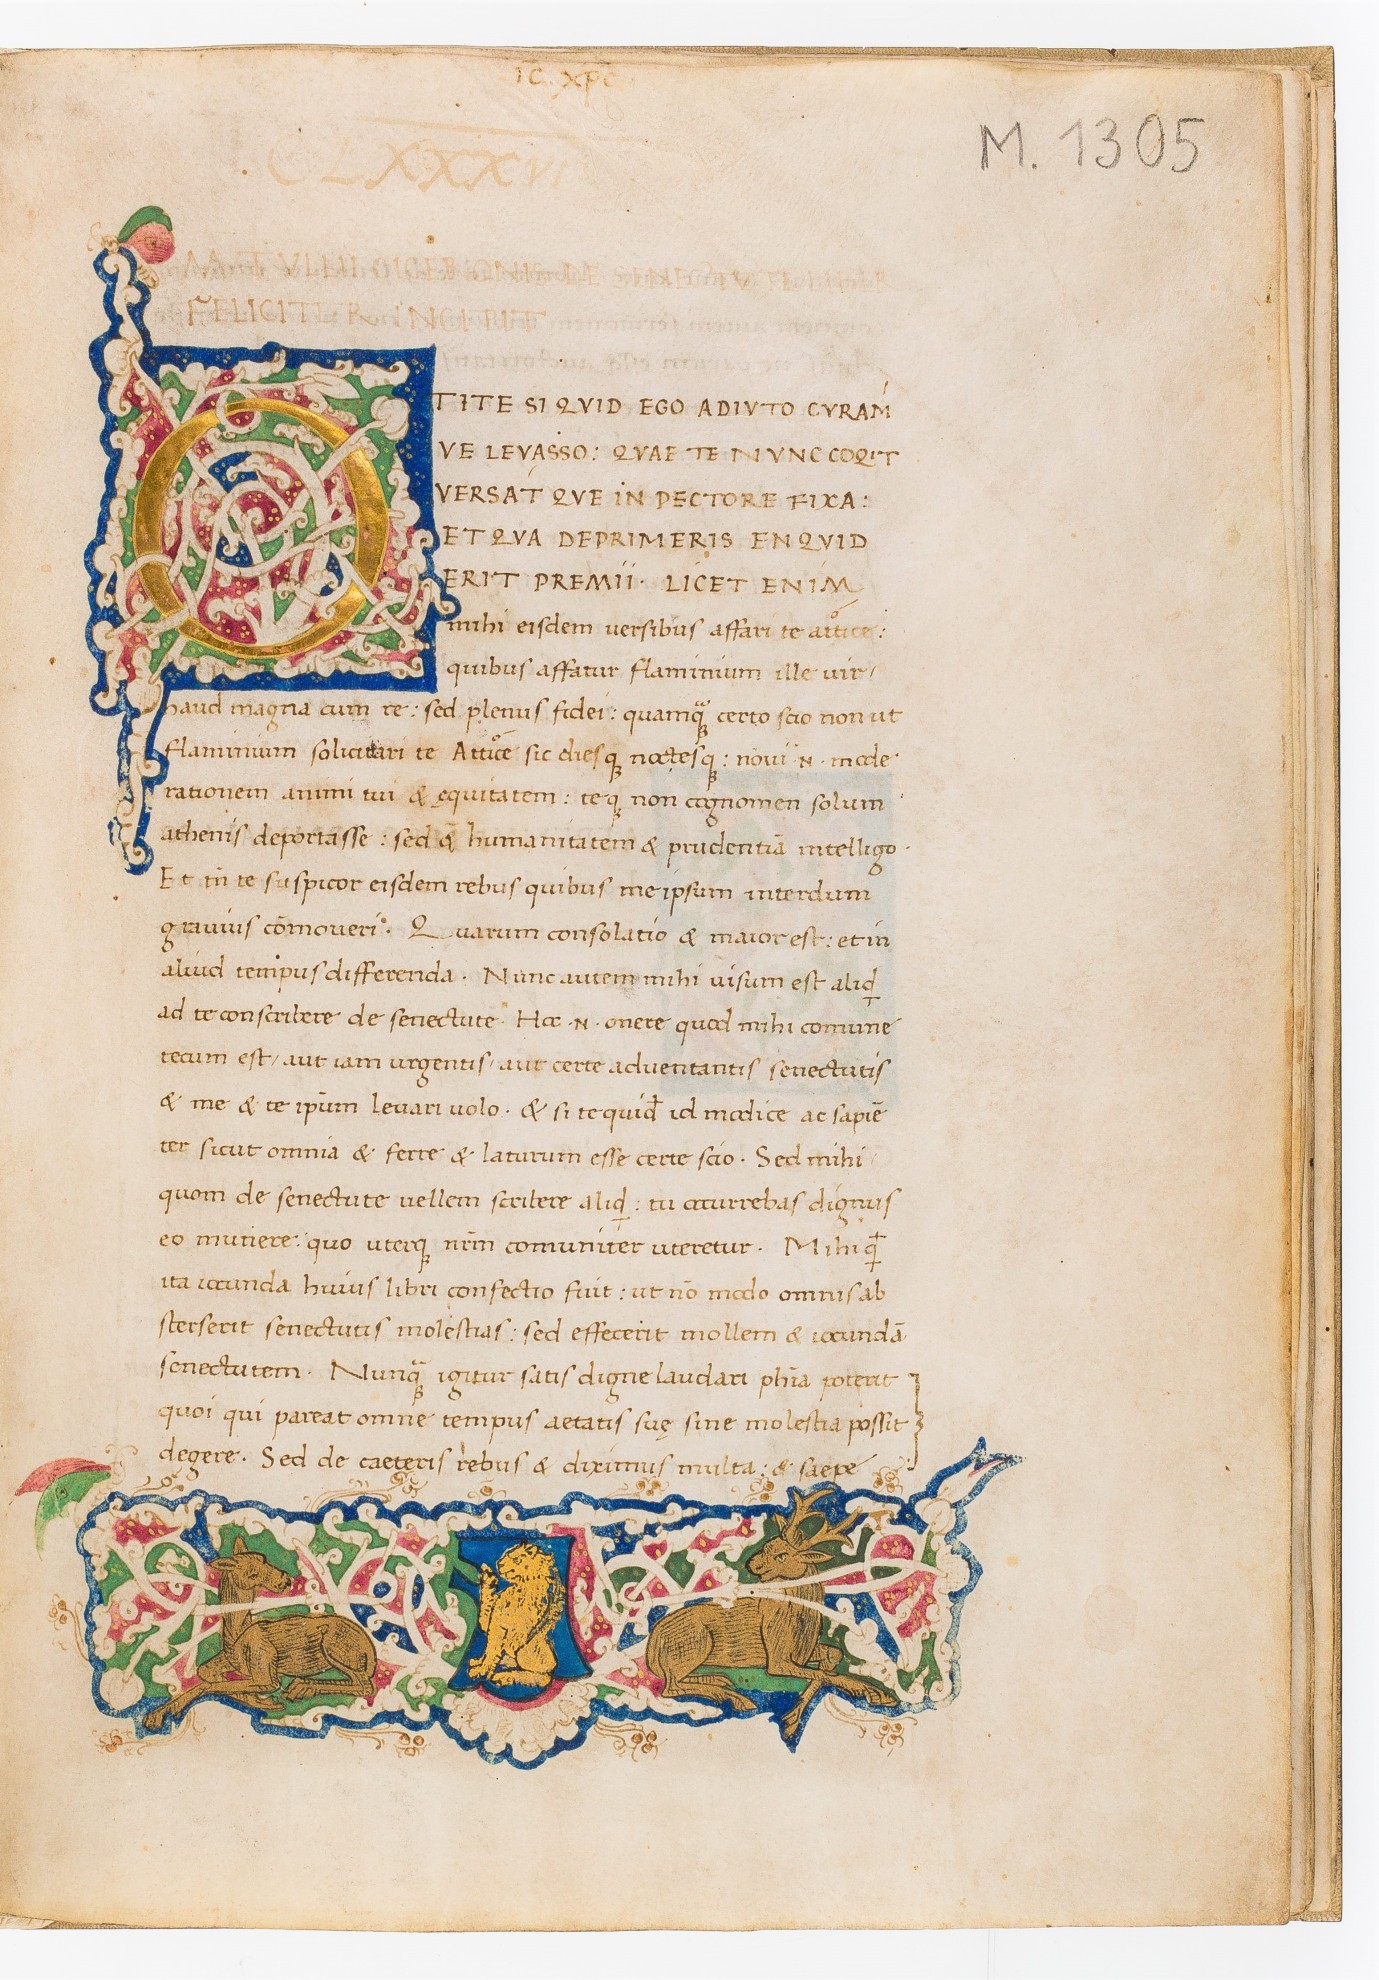 IC. XPC
CLXXXVI
M. 1305
M. TVLLII CICERONIS DE SENECTVTE LIBER
FELICITER INCIPIT
O TITE SI QVID EGO ADIVTO CVRAM
VE LEVASSO: QVAE TE NVNC COQIT
VERSAT QVE IN PECTORE FIXA:
ET QVA DEPRIMERIS ENQVID
ERIT PREMII· LICET ENIM
mihi eisdem versibus affari te attice:
quibus affatur flaminium ille vir/
haud magna cum re: sed plenus fidei: quamq̃ certo scio non ut
flaminium solicitari te Attice sic diesq noctesq: novi ·N· mode
rationem animi tui & ęquitatem: teq non cognomen solum
athenis deportasse: sed & humanitatem & prudentiā intelligo·
Et tñ te suspicor eisdem rebus quibus me ipsum interdum
gravius cōmoveri· Quarum consolatio & maior est: et in
aliud tempus differenda. Nunc autem mihi visum est aliqd
ad te conscribere de senectute· Hoc ·N· onere quod mihi comune
tecum est/ aut iam urgentis/ aut certe adventantis senectutis
& me & te ipsum levari volo· & si te quidē id modice ac sapiē
ter sicut omnia & ferre & laturum esse certe scio· Sed mihi
quom de senectute vellem scribere aliqd: tu occurrebas dignus
eo munere: quo uterq nr̄m comuniter uteretur· Mihi qđ
ita iocunda huius libri confectio fuit: ut nō modo omnis ab
sterserit senectutis molestias: sed effecerit mollem & iocundā
senectutem· Nunq̃ igitur satis digne laudari phīa poterit
quoi qui pareat omne tempus aetatis suę sine molestia possit
degere· Sed de caeteris rebus & diximus multa: & saepe